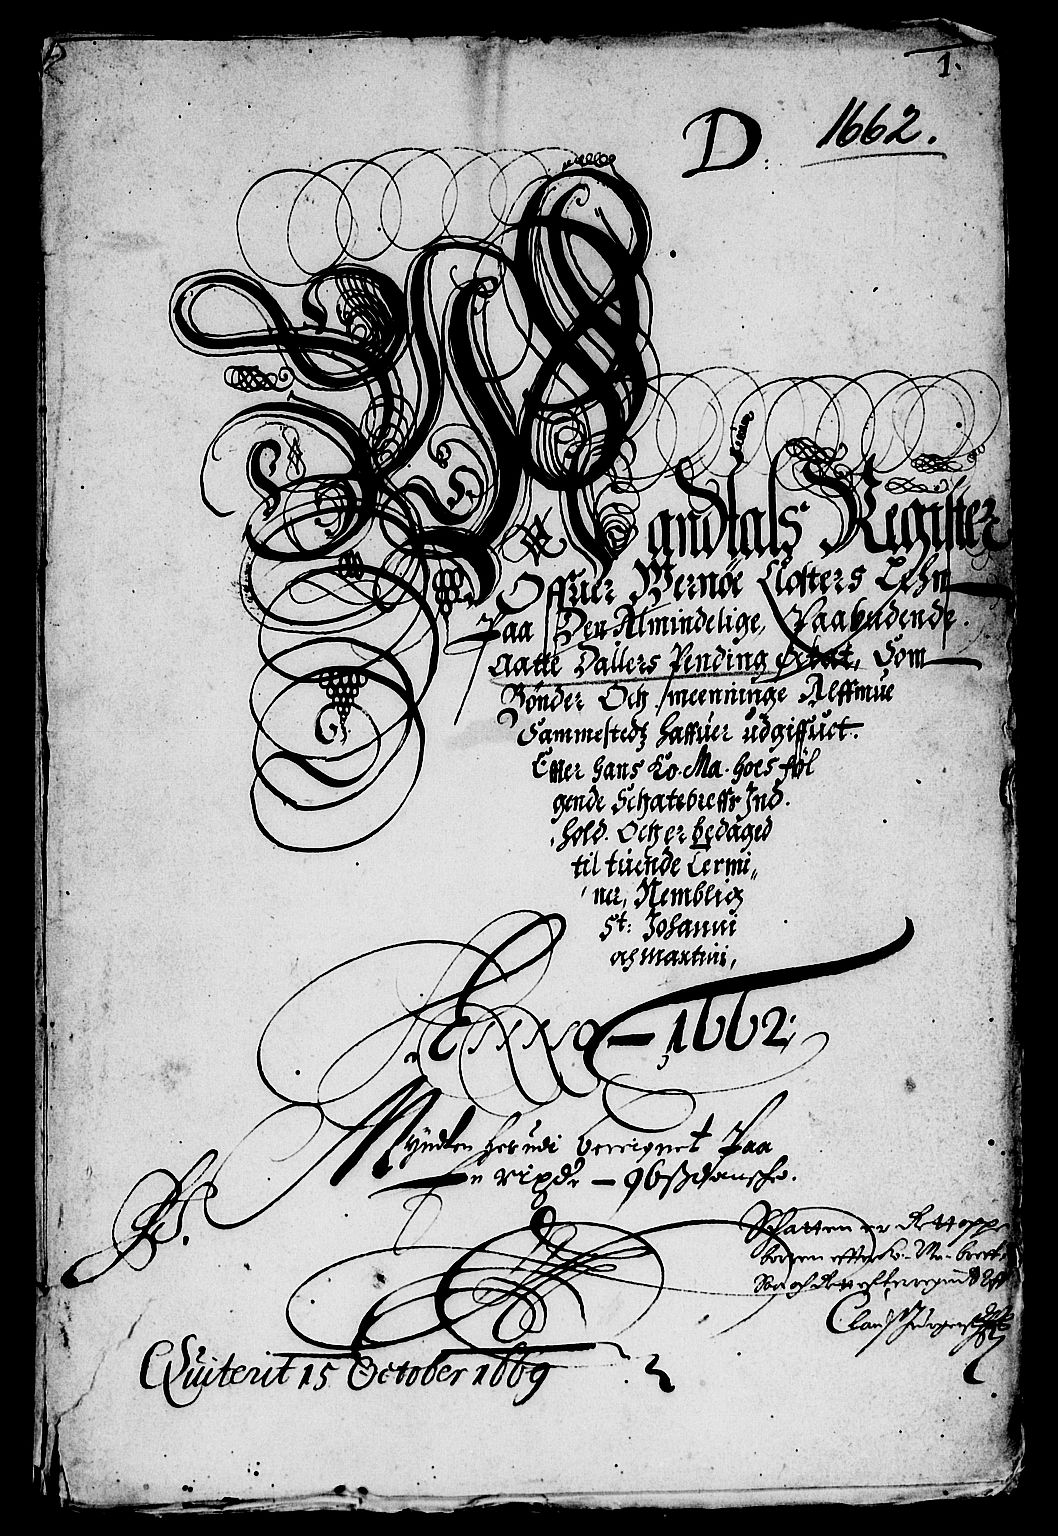 1.
D: 1662.
Mandtals Register
Offuer Wernøe Closters Lehn
Paa Den Almindelige, Paabudende
Aatte Dallers Pending Schat, Som
Bønder Och meenninge Allmue
Sammestedtz haffuer udgiffuet.
Effter hans Ko. Ma. hoes føl
gende Schatebreffs Ind
hold. Och er bedaged
til tuende Termi,,
ner, Nemblig
St: Johanni
och Martini,
Anno – 1662;
Mÿndten herudi bereignet Paa
– 96 ß danske.
Schatten er
Quiterit 15 October 1669